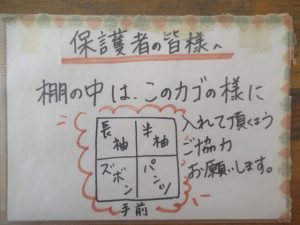 保護者の皆様へ
棚の中は、このカゴの様に
長袖 半袖
ズボン パンツ
手前
入れて頂くよう
ご協力
お願いします。